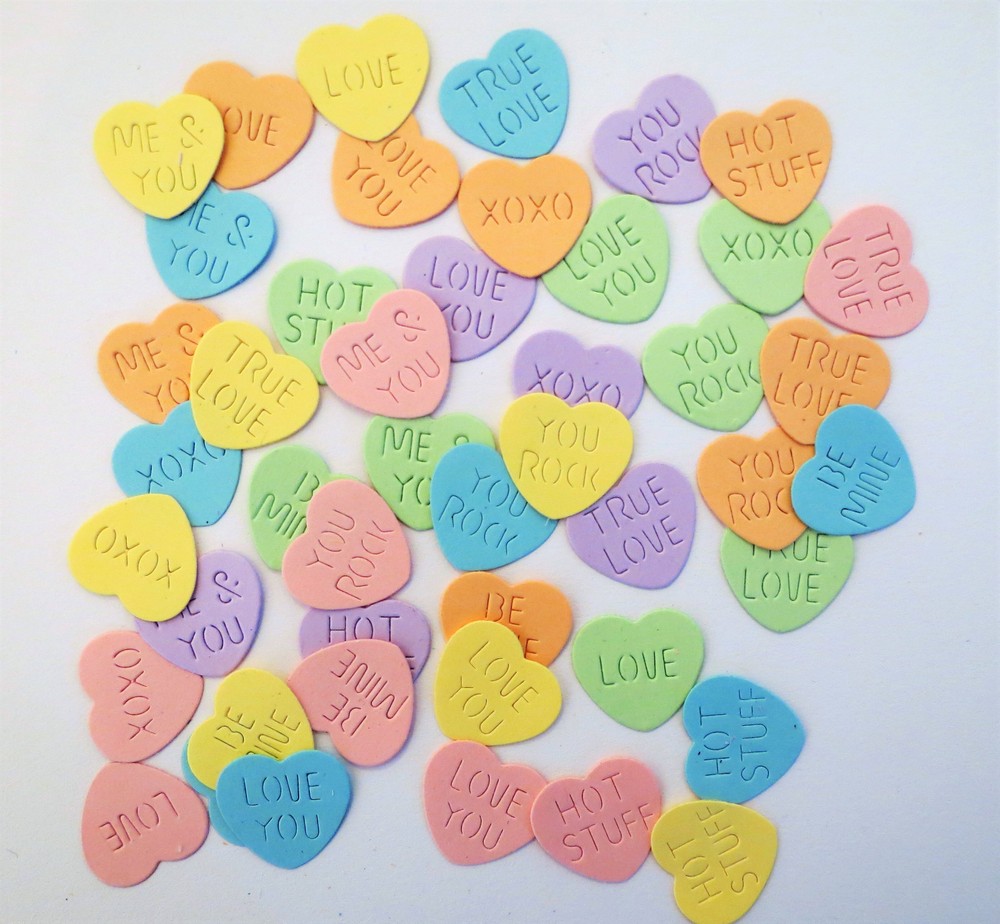 LOVE
TRUE
LOVE
ME &
YOU
OVE
YOU
ROCK
HOT
STUFF
OVE
YOU
XOXO
E &
YOU
LOVE
YOU
LOVE
YOU
XOXO
TRUE
LOVE
HOT
STU
ME &
YOU
ME &
YO
TRUE
LOVE
XOXO
YOU
ROCK
TRUE
LOVE
XOXO
ME &
YO
YOU
ROCK
YOU
ROCK
TRUE
LOVE
YOU
ROC
BE
MINE
BE
MIN
YOU
ROCK
XOXO
TRUE
LOVE
E &
YOU
HOT
BE
E
LOVE
XOXO
BE
MINE
LOVE
YOU
BE
INE
HOT
STUFF
LOVE
LOVE
YOU
LOVE
YOU
HOT
STUFF
HOT
STUFF